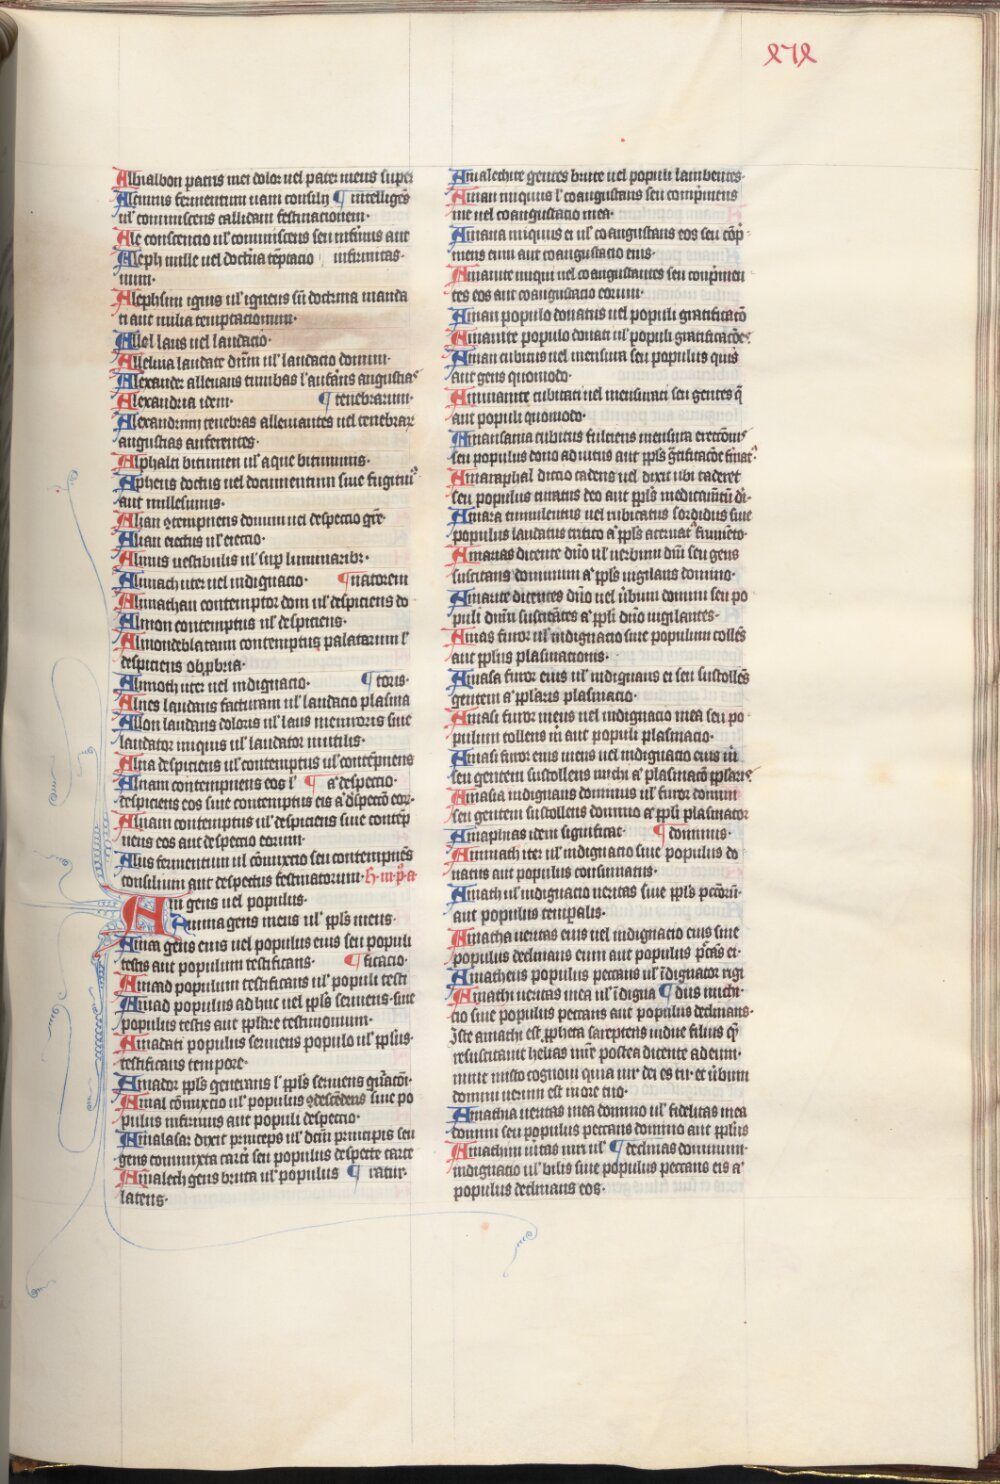 Albialbon patris mei dolor uel pater meus super
Alcimus fermentum uam consilij ¶ intelligens
ul' commiscens callidam festinacionem·
Ale conscencio ul' commiscens seu infirmus aut
Aleph mille uel doctrina temptacio infirmitas·
mum·
Alephsim ignis ul' igneus
ti aut milia temptacionum·
Allel laus uel laudacio·
Alleluia laudate dnm ul' laudacio domini·
Alexander alleuans turribas l' auferens angustias
Alexandria idem· ¶ tenebrarum·
Alexandrini tenebras alleuiantes uel tenebrar
angustias auferentes·
Alphalti bitumen ul' aque bituminis·
Alpheus doctus uel documentum siue fugitiuus
aut millesimus·
Alian contempnens domum uel despectio
Alian eiectus ul' eiectio·
Alimis uestibulis ul' sup luminarib3·
Alimach iter uel indignacio· ¶ natorem
Alimathan contemptor dom ul' despiciens do
Almon contemptus ul' despiciens·
Almondeblataim contemptus palatarum l'
despiciens obprobria·
Alimoth iter uel indignacio· ¶ toris·
Alnes laudans facturam ul' laudacio plasma
Allon laudans doloris ul' laus memoris siue
laudator iniquus ul' laudator inutilis·
Alua despiciens ul' contemptus ul' contempnens
Aluam contempnens eos l' ¶ a' despectio·
despiciens eos siue contemptus eis a' despecto eor·
Aluam contemptus ul' despiciens siue contemp
nens eos aut despectio eorum·
Alus fermentum ul' conmixtio seu contempnens
consilium aut despectus festinatorum·
Am gens uel populus·
Amma gens meus ul' ppls meus·
Amca gens eius uel populus eius seu populi
testis aut populum testificans· ¶ ficacio·
Amcad populum testificans ul' populi testi
Amad populus adhuc uel ppls seruiens siue
populus testis aut testimonium·
Amadati populus seruiens populo ul'
testificans tempore·
Amador ppls generans l' ppls seruiens
Amal conmixtio ul' populus siue po
pulus infirmus aut populi despectio·
Amalasar dixit princeps ul' dictum principis seu
gens commixta carti seu populus despecte carte
Amalech gens bruta ul' populus ¶ ratur·
latens·
Amalechite gentes brute uel populi lambentes·
Aman iniquus l' coangustans seu comprimens
me uel coangustacio mea·
Amana iniquus ei ul' coangustans eos seu comp
mens eum aut coangustacio eius·
Amanite iniqui uel coangustantes seu comprimen
tes eos aut coangustacio eorum·
Aman populo donatus uel populi gratificatio
Amanite populo donati ul' populi gratificatione·
Aman cubitus uel mensura seu populus quis
aut gens quomodo·
Amanite cubitati uel mensurati seu gentes q
aut populi quomodo·
Amansania cubitus fulciens mensura erectionis
seu populus dono adiutus aut
Amaraphal dictio cadens uel dixit ubi caderet
seu populus curatus deo aut ppls
Amara temulentus uel rubicatus sordidus siue
populus laudatus
Amarias dicente dno ul' uerbum dni seu gens
suscitans dominum a' ppls uigilans domino·
Amarite dicentes dno uel uerbum domini seu po
puli dnm suscitantes a' ppli dno uigilantes·
Amas furor ul' indignacio siue populum tollens
aut pplus plasmacionis·
Amasa furor eius ul' indignans ei seu sustollens
gentem a' plasmacio·
Amasi furor meus uel indignacio mea seu po
pulum tollens m aut populi plasmacio·
Amasi furor eius meus uel indignacio eius m
seu gentem sustollens michi a' plasmacio
Amasia indignans dominus ul' furor domini
seu gentem sustollens domino a' ppli plasmator
Amaphias idem significat· ¶ dominus·
Amimach iter ul' indignatio siue populus do
natus aut populus consumatus·
Amath ul' indignacio ueritas siue ppls
aut populus temporalis·
Amatha ueritas eius uel indignacio eius siue
populus declinans eum aut populus ei·
Amatheus populus peccans ul' indignator rigi
Amathi ueritas mea ul' indigna ¶ dus michi·
cio siue populus peccans aut populus declinans·
Iste amathi est ppheta sareptens uidue filius
resuscitauit helias postea dicente ad eum·
nunc uisto cognoui quia uir dei es tu et uerbum
domini uerum est in ore tuo·
Amathia ueritas mea domino ul' fidelitas mea
domini seu populus peccans domino aut pplus
Amathim ul' ¶ declinas dominum·
indignacio ul' bilis siue populus peccans eis a'
populus declinans eos·